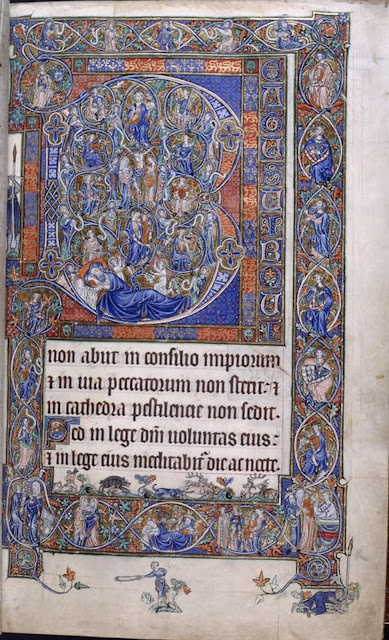 B
EATUS UIR QUI
non abiit in consilio impiorum
⁊ in uia peccatorum non stetit: ⁊
in cathedra pestilencie non sedit
Sed in lege dñi uoluntas eius:
⁊ in lege eius meditabit᷑ die ac nocte.